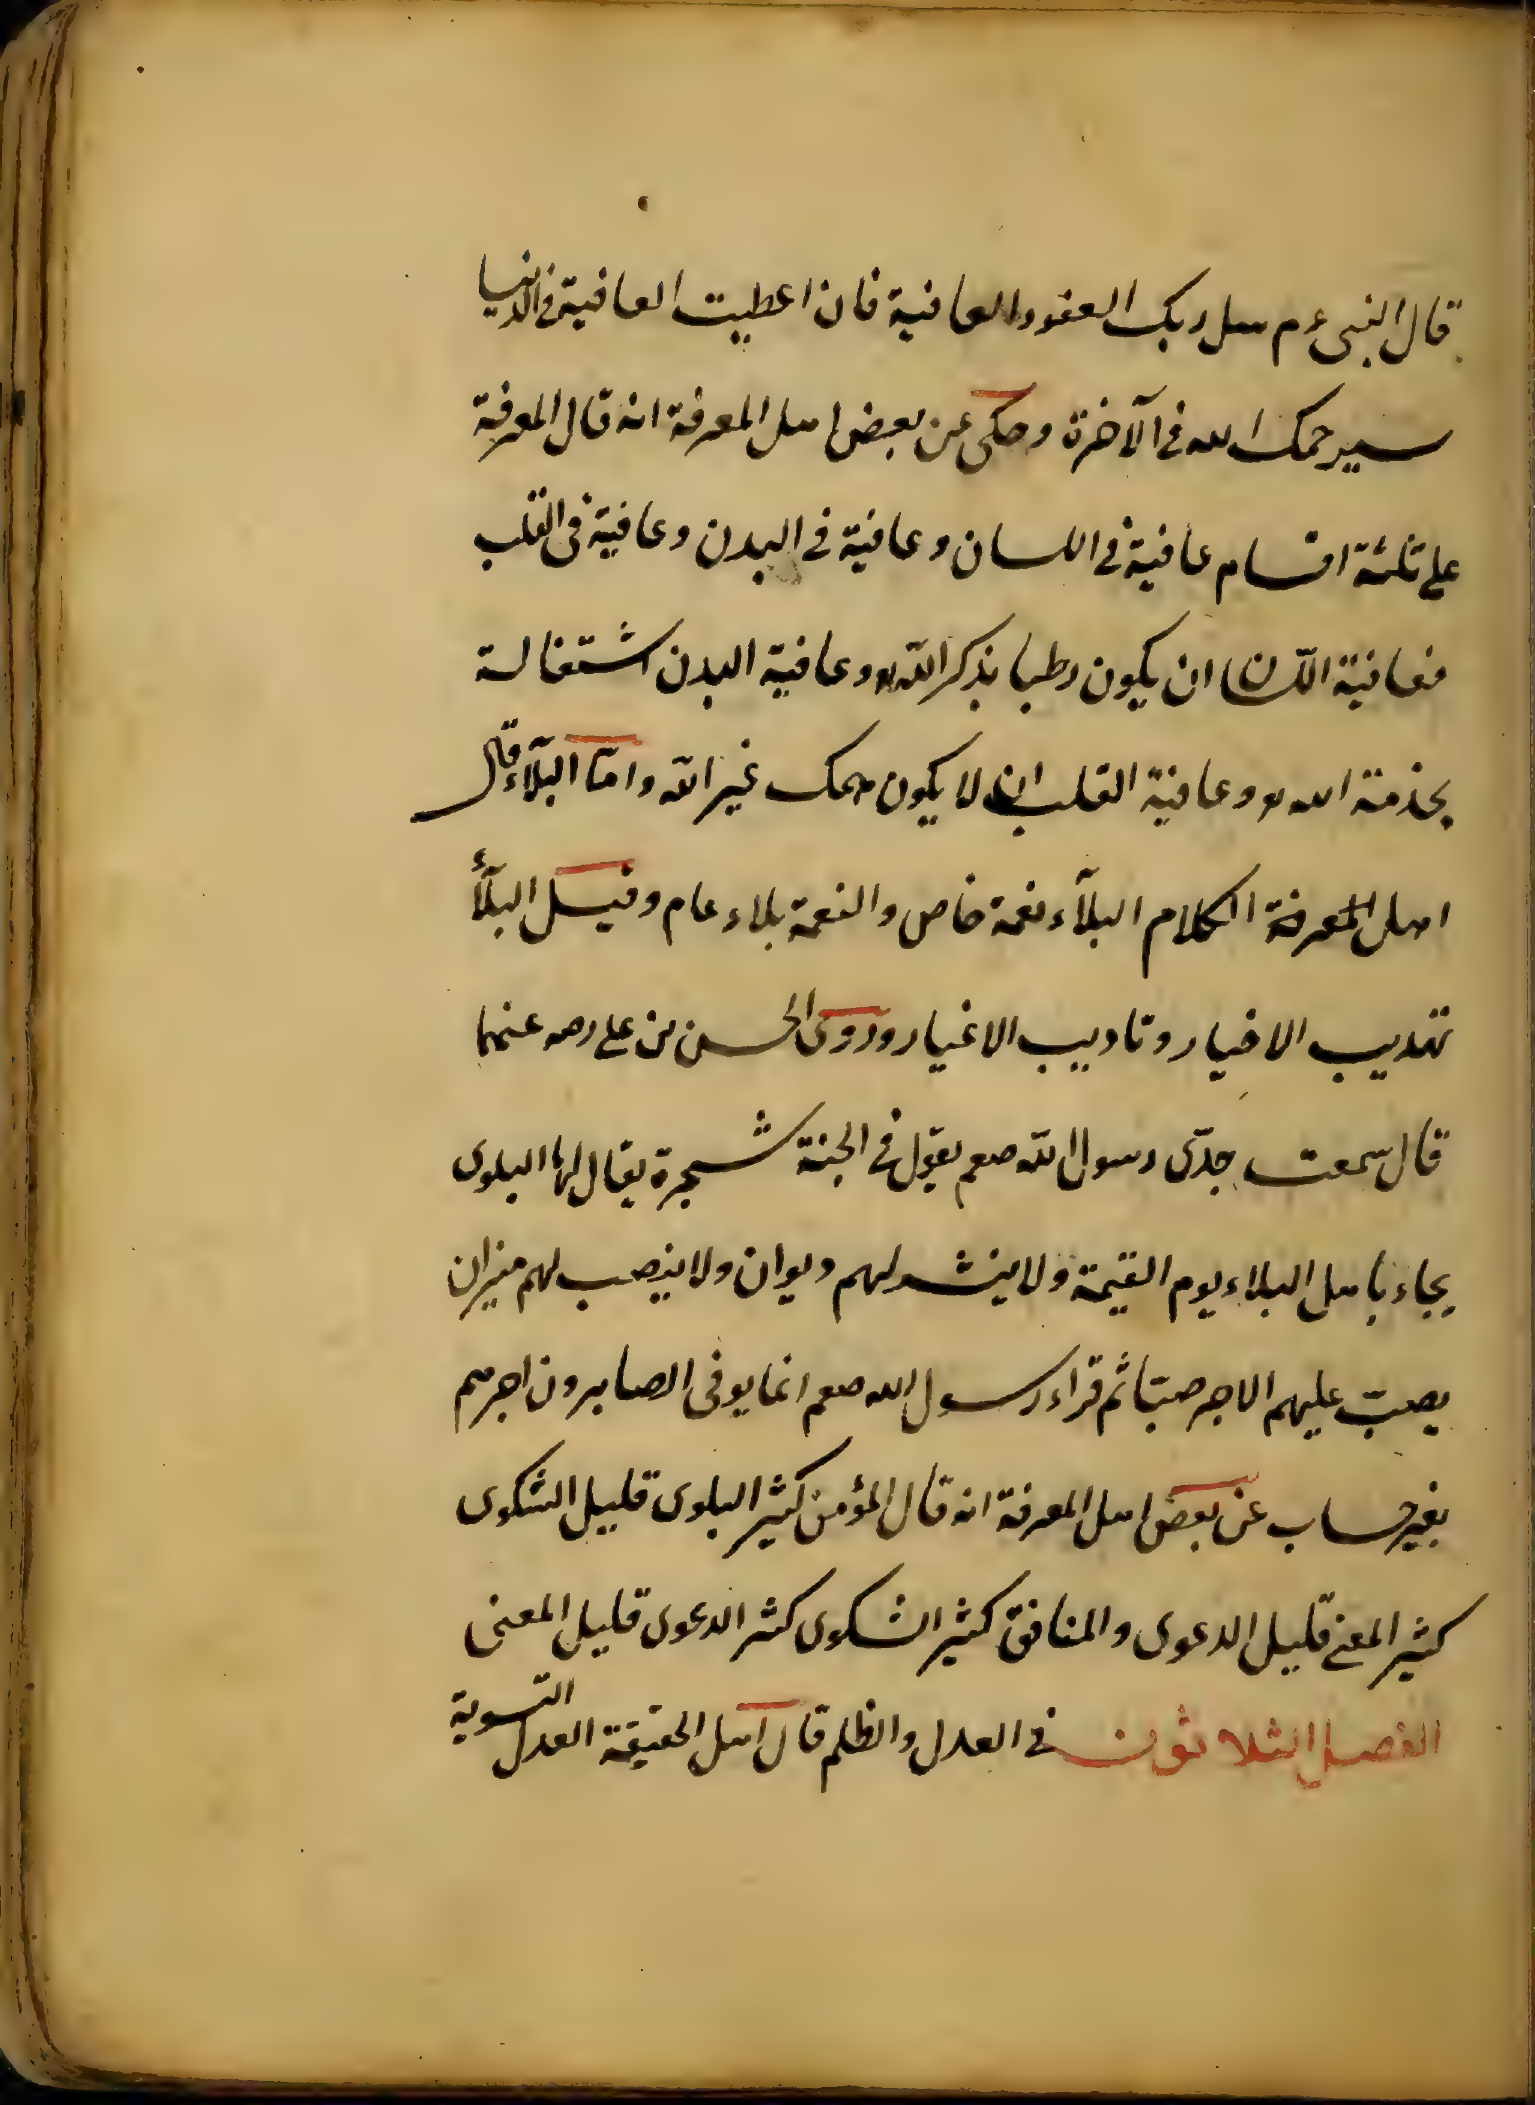 قال النبى ءم سل ربك العفو والعافية فان اعطيت العافية فى الدنيا
سيرحمك الله فى الآخرة وحكى عن بعض اهل المعرفة انه قال المعرفة
على ثلثة اقسام عافية فى اللسان وعافية فى البدن وعافية فى القلب
فعافية اللسان ان يكون رطبا بذكر الله وعافية البدن اشتغاله
بخدمة الله وعافية القلب ان لا يكون همك غير الله واما البلآء قال
اهل المعرفة الكلام البلآء نعمة خاص والنعمة بلاء عام وقيل البلآء
تهديب الاخيار وتاديب الاغيار وروى الحسن بن على رضه عنهما
قال سمعت جدى رسول الله صعم يقول فى الجنة شجرة يقال لها البلوى
يجاء باهل البلاء يوم القيمة ولا ينشر لهم ديوان ولا ينصب لهم ميزان
يصب عليهم الاجر صبا ثم قراء رسول الله صعم انما يوفى الصابرون اجرهم
بغير حساب عن بعض اهل المعرفة انه قال المؤمن كثير البلوى قليل الشكوى
كثير المعنى قليل الدعوى والمنافق كثير الشكوى كثر الدعوى قليل المعنى
الفصل الثلاثون فى العدل والظلم قال اهل الحقيقة العدل التسوية